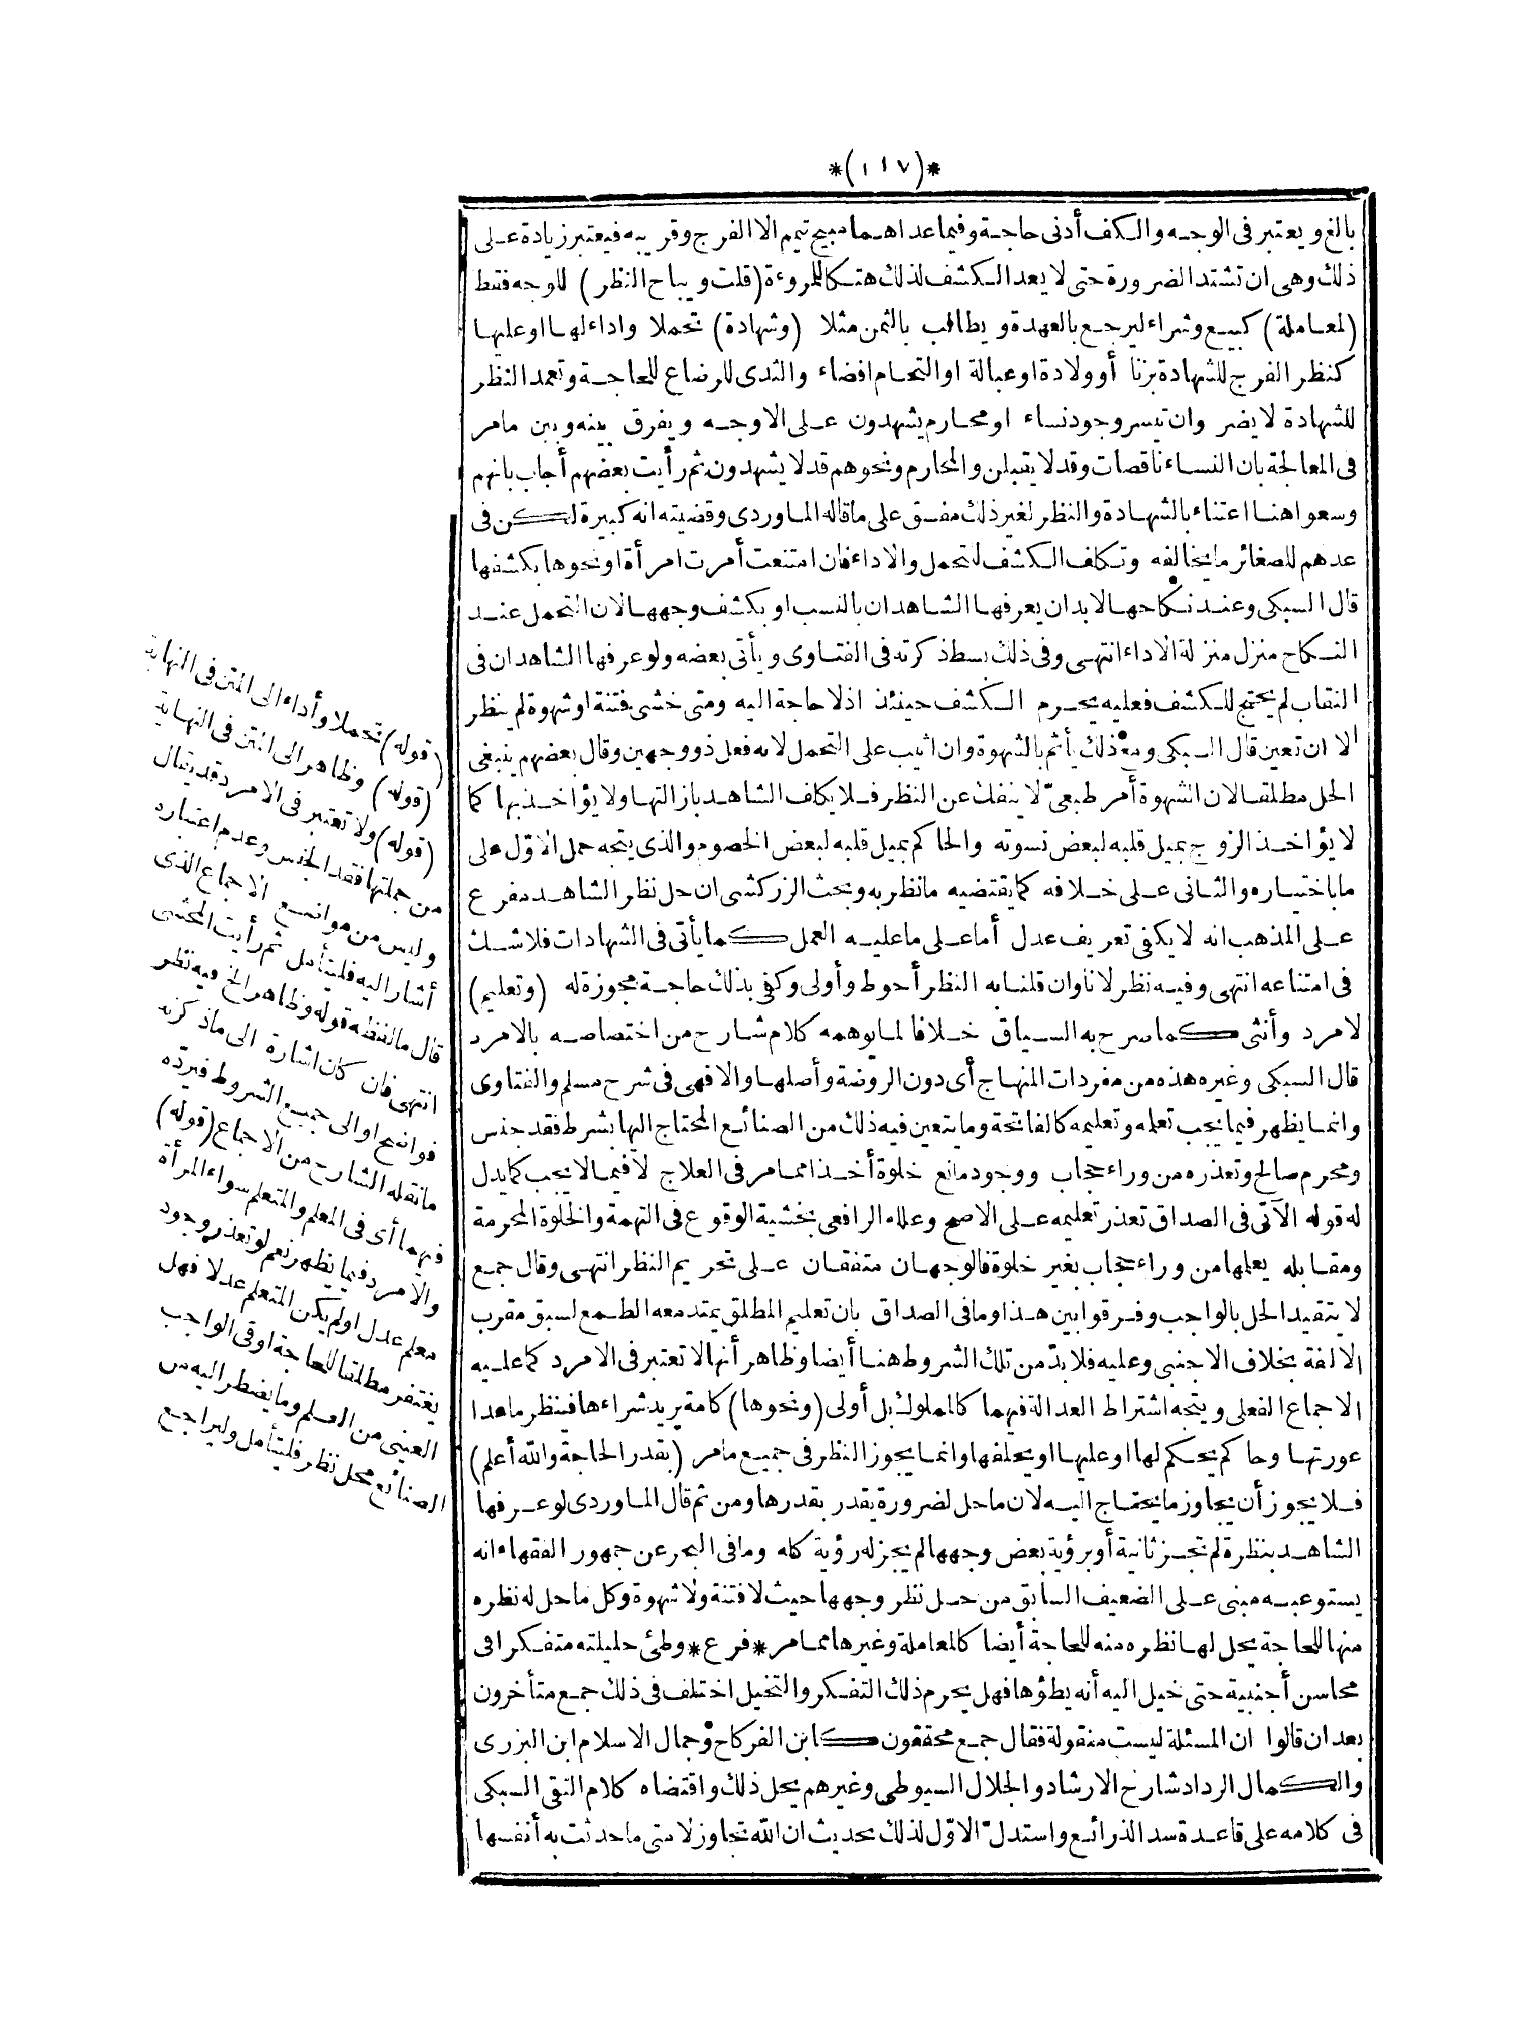 *(١١٧)*
بالغ ويعتبر في الوجه والكف أدنى حاجة وفيما عداهما مبيح تيمم الا الفرج وقريبه فيعتبر زيادة على
ذلك وهي ان تشتد الضرورة حتى لا يعد الكشف لذلك هتكا للمروءة (قلت ويباح النظر) للوجه فقط
(لمعاملة) كبيع وشراء ليرجع بالعهدة ويطالب بالثمن مثلا (وشهادة) تحملا واداء لها او عليها
كنظر الفرج للشهادة بزنا أو ولادة او عبالة او التحام افضاء والثدى للرضاع للحاجة وتعمد النظر
للشهادة لا يضر وان تيسر وجود نساء او محارم يشهدون على الاوجه ويفرق بينه وبين مامر
فى المعالجة بان النساء ناقصات وقد لا يقبلن والمحارم ونحوهم قد لا يشهدون ثم رأيت بعضهم أجاب بانهم
وسعوا هنا اعتناء بالشهادة والنظر لغير ذلك مفسق على ما قاله الماوردى وقضيته انه كبيرة لكن فى
عدهم للصغائر ما يخالفه وتكلف الكشف لتحمل والاداء فان امتنعت أمرت امرأة او نحوها بكشفها
قال السبكى وعند نكاحها لابد ان يعرفها الشاهدان بالنسب او بكشف وجهها لان التحمل عند
النكاح منزل منزلة الاداء انتهى وفى ذلك بسط ذكرته فى الفتاوى ويأتى بعضه ولو عرفها الشاهدان فى
النقاب لم يحتج للكشف فعليه يحرم الكشف حينئذ اذ لا حاجة اليه ومتى خشى فتنة او شهوة لم ينظر
الا ان تعين قال السبكى ومع ذلك يأثم بالشهوة وان اثيب على التحمل لانه فعل ذو وجهين وقال بعضهم ينبغى
الحل مطلقا لان الشهوة أمر طبعىّ لا ينفك عن النظر فلا يكلف الشاهد بازالتها ولا يؤاخذ بها كما
لا يؤاخذ الزوج بميل قلبه لبعض نسوته والحاكم بميل قلبه لبعض الخصوم والذى يتجه حمل الاوّل على
ما باختياره والثانى على خلافه كما يقتضيه ما نظر به وبحث الزركشى ان حل نظر الشاهد مفرع
على المذهب انه لا يكفى تعريف عدل أما على ما عليه العمل كما يأتى فى الشهادات فلا شك
فى امتناعه انتهى وفيه نظر لانا وان قلنا به النظر أحوط وأولى وكفى بذلك حاجة مجوزة له (وتعليم)
لامرد وأنثى كما صرح به السياق خلافا لما يوهمه كلام شارح من اختصاصه بالامرد
قال السبكى وغيره هذه من مفردات المنهاج أى دون الروضة وأصلها والا فهى فى شرح مسلم والفتاوى
وانما يظهر فيما يجب تعلمه وتعليمه كالفاتحة وما يتعين فيه ذلك من الصنائع المحتاج اليها بشرط فقد جنس
ومحرم صالح وتعذره من وراء حجاب ووجود مانع خلوة أخذا مما مر فى العلاج لا فيما لا يجب كما يدل
له قوله الآتى فى الصداق تعذر تعليمه على الاصح وعلله الرافعى بخشية الوقوع فى التهمة والخلوة المحرمة
ومقابله يعلمها من وراء حجاب بغير خلوة فالوجهان متفقان على تحريم النظر انتهى وقال جمع
لا يتقيد الحل بالواجب وفرقوا بين هذا وما فى الصداق بان تعليم المطلق يمتد معه الطمع لسبق مقرب
الالفة بخلاف الاجنبى وعليه فلا بدّ من تلك الشروط هنا أيضا وظاهر أنها لا تعتبر فى الامرد كما عليه
الاجماع الفعلى ويتجه اشتراط العدالة فيهما كالمملوك بل أولى (ونحوها) كامة يريد شراءها فينظر ما عدا
عورتها وحاكم يحكم لها او عليها او يحلفها وانما يجوز النظر فى جميع مامر (بقدر الحاجة والله أعلم)
فلا يجوز أن يجاوز ما يحتاج اليه لان ما حل لضرورة يقدر بقدرها ومن ثم قال الماوردى لو عرفها
الشاهد بنظرة لم تجز ثانية أو برؤية بعض وجهها لم يجز له رؤية كله وما فى البحر عن جمهور الفقهاء انه
يستوعبه مبنى على الضعيف السابق من حل نظر وجهها حيث لا فتنة ولا شهوة وكل ما حل له نظره
منها للحاجة يحل لها نظره منه للحاجة أيضا كالمعاملة وغيرها مما مر *فرع* وطئ حليلته متفكرا فى
محاسن أجنبية حتى خيل اليه أنه يطؤها فهل يحرم ذلك التفكر والتخيل اختلف فى ذلك جمع متأخرون
بعد ان قالوا ان المسئلة ليست منقولة فقال جمع محققون كابن الفركاح وجمال الاسلام ابن البزرى
والكمال الرداد شارح الارشاد والجلال السيوطى وغيرهم يحل ذلك واقتضاه كلام التقى السبكى
فى كلامه على قاعدة سد الذرائع واستدل الاوّل لذلك بحديث ان الله تجاوز لامتى ما حدثت به أنفسها
(قوله) تحملا وأداء الى المتن فى النهاية
(قوله) وظاهر الى المتن فى النهاية
(قوله) ولا تعتبر فى الامرد قد يقال
من جملتها فقد الجنس وعدم اعتباره
وليس من مواضع الاجماع الذى
أشار اليه فليتأمل ثم رأيت المحشى
قال ما لفظه قوله وظاهر الخ فيه نظر
انتهى فان كان اشارة الى ما ذكرته
فواضح او الى جميع الشروط فيردّه
ما نقله الشارح من الاجماع (قوله)
فيهما أى فى المعلم والمتعلم سواء المرأة
والامرد فيما يظهر نعم لو تعذر وجود
معلم عدل او لم يكن المتعلم عدلا فهل
يغتفر مطلقا للحاجة او فى الواجب
العينى من العلم وما يضطر اليه من
الصنائع محل نظر فليتأمل وليراجع